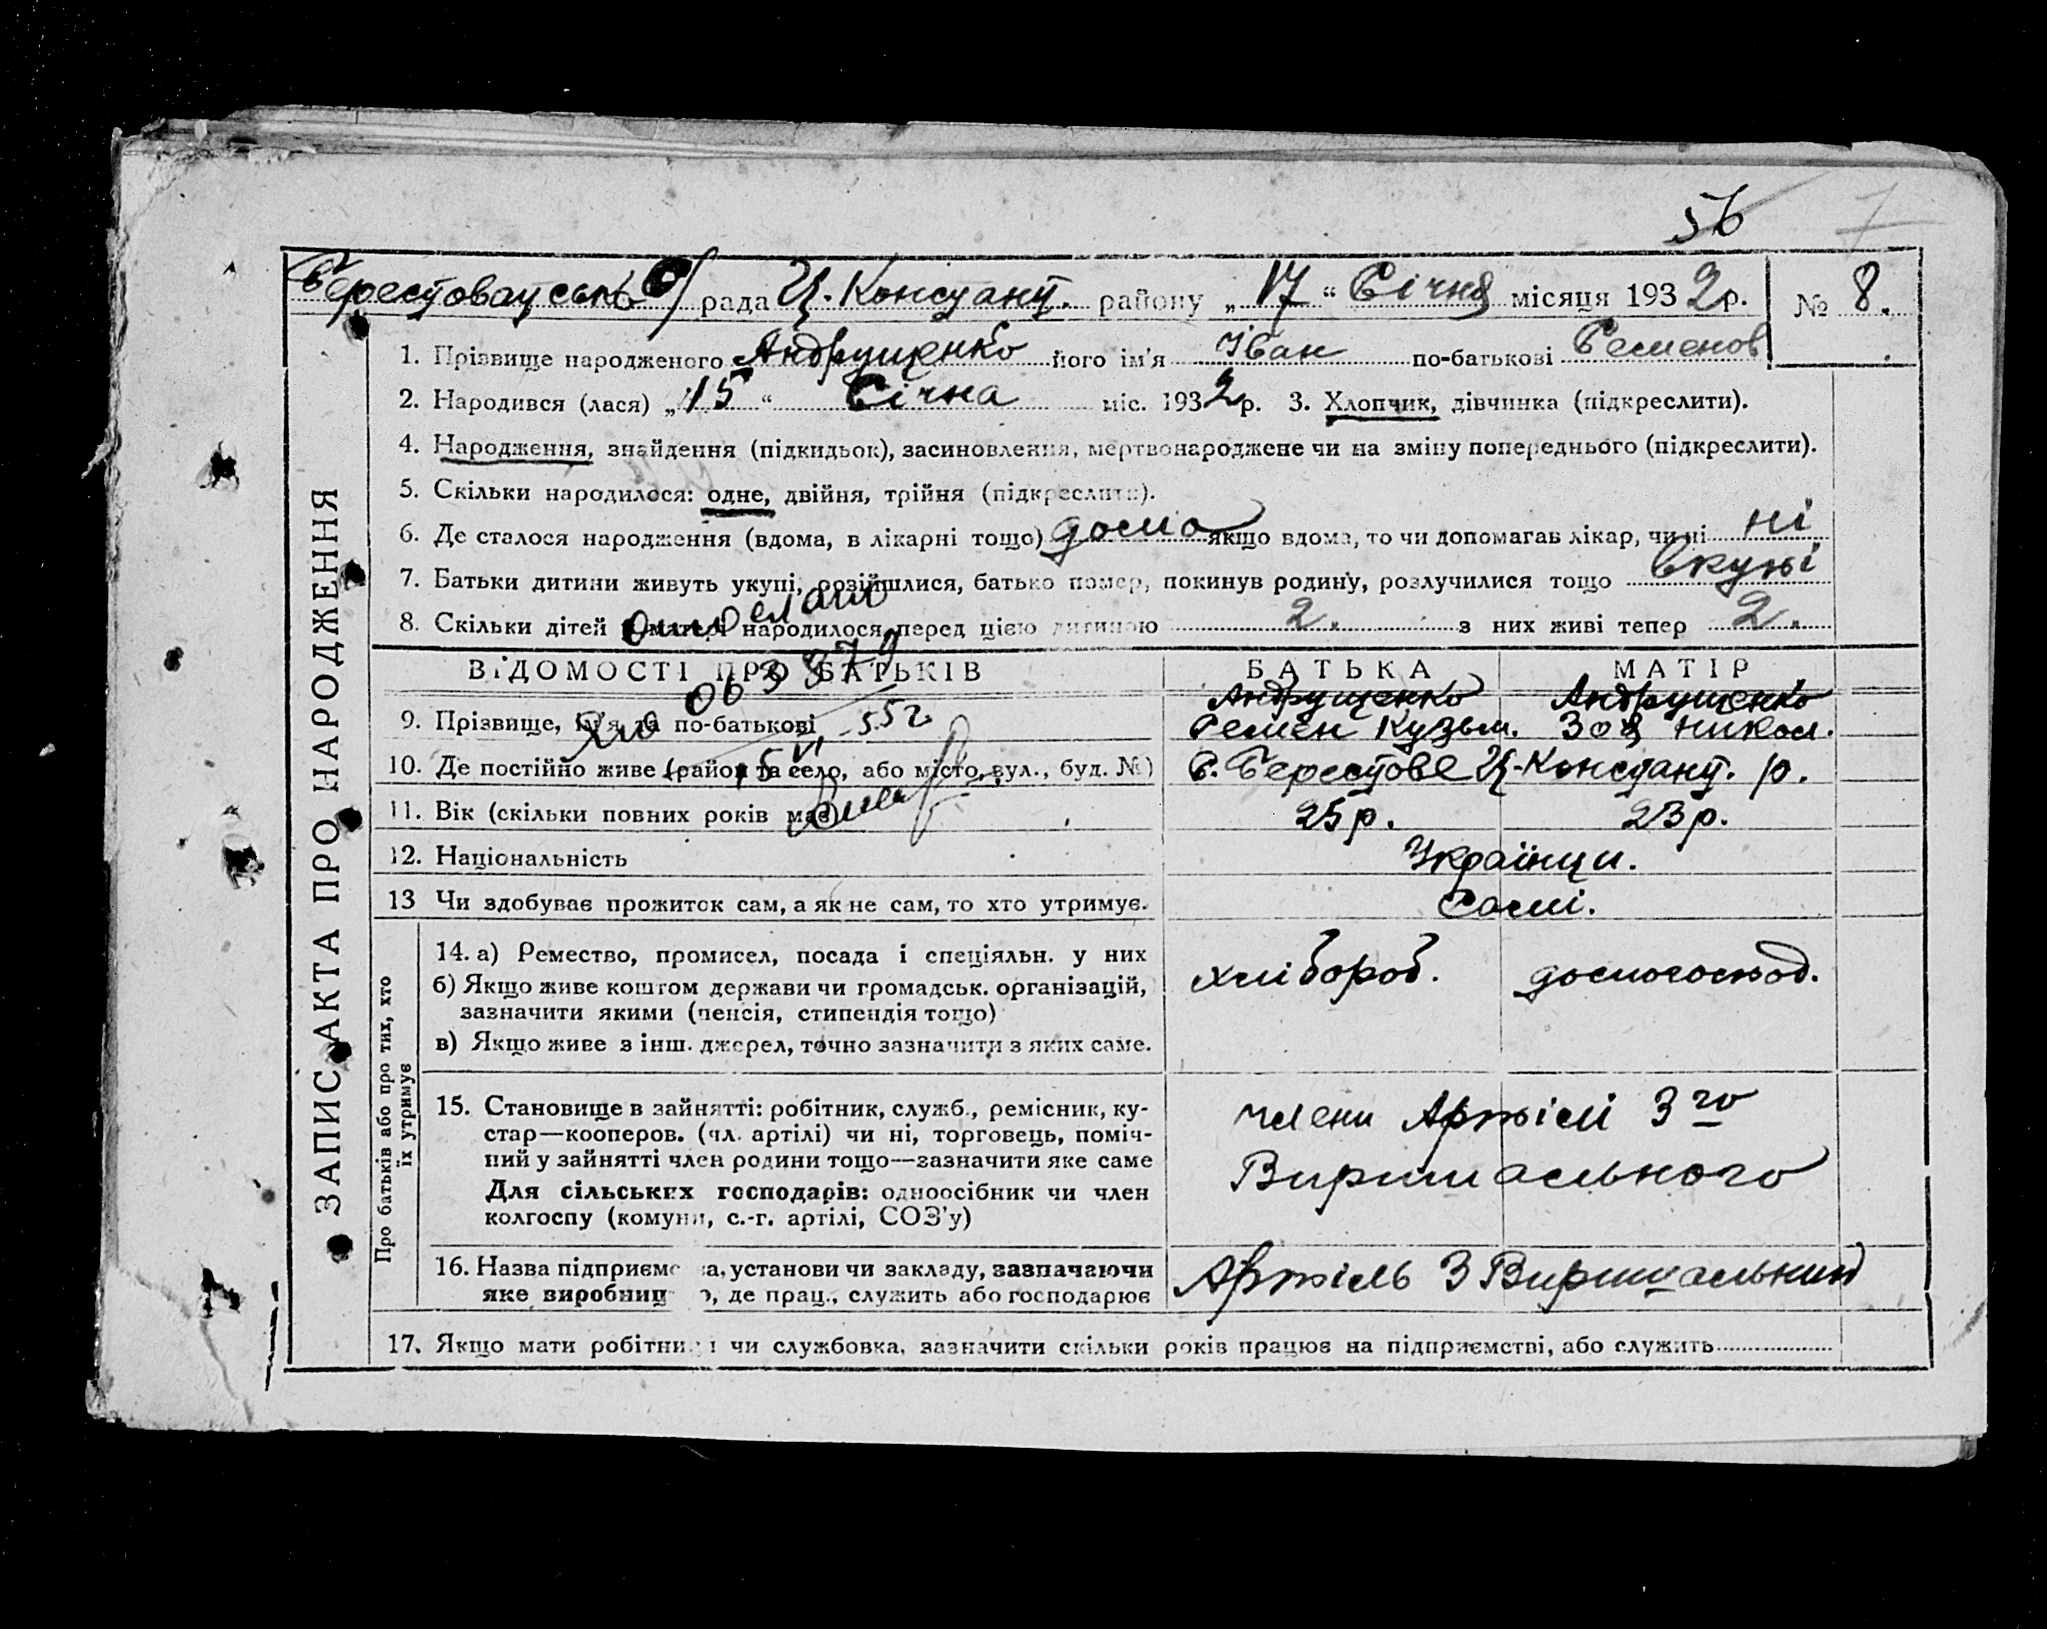 56 7
Берестовацська с/ рада Ц. Констант. району „17“ Січня місяця 1932 р. № 8.
1. Прізвище народженого Андрущенко його ім'я Іван по-батькові Семенов
2. Народився (лася) „15“ Січна міс. 1932 р. 3. Хлопчик, дівчинка (підкреслити).
4. Народження, знайдення (підкидьок), засиновлення, мертвонароджене чи на зміну попереднього (підкреслити).
5. Скільки народилося: одне, двійня, трійня (підкреслити).
6. Де сталося народження (вдома, в лікарні тощо) дома якщо вдома, то чи допомагав лікар, чи ні ні
7. Батьки дитини живуть укупі, розійшлися, батько помер, покинув родину, розлучилися тощо вкупі
8. Скільки дітей у матері народилося перед цією дитиною 2. з них живі тепер 2.
ВІДОМОСТІ ПРО БАТЬКІВ БАТЬКА МАТІР
9. Прізвище, ім'я та по-батькові Андрущенко Семен Кузьм. Андрущенко Зоя Никол.
10. Де постійно живе (район та село, або місто, вул., буд. №) С. Берестове Ц-Констант. р.
11. Вік (скільки повних років має 25 р. 23 р.
12. Національність Українци.
13 Чи здобуває прожиток сам, а як не сам, то хто утримує. Самі.
14. а) Ремество, промисел, посада і спеціяльн. у них хлібороб. домогоспод.
б) Якщо живе коштом держави чи громадськ. організацій,
зазначити якими (пенсія, стипендія тощо)
в) Якщо живе з інш. джерел, точно зазначити з яких саме.
15. Становище в зайнятті: робітник, служб., ремісник, ку-
стар—кооперов. (чл. артілі) чи ні, торговець, поміч-
ний у зайнятті член родини тощо—зазначити яке саме
Для сільських господарів: одноосібник чи член
колгоспу (комуни, с.-г. артілі, СОЗ'у)
члени Артілі 3го
Вирішального
16. Назва підприємства, установи чи закладу, зазначаючи
яке виробництво, де прац., служить або господарює
Артіль 3 Вирішальний
17. Якщо мати робітниця чи службовка, зазначити скільки років працює на підприємстві, або служить
ЗАПИС АКТА ПРО НАРОДЖЕННЯ
Про батьків або про тих, хто
їх утримує